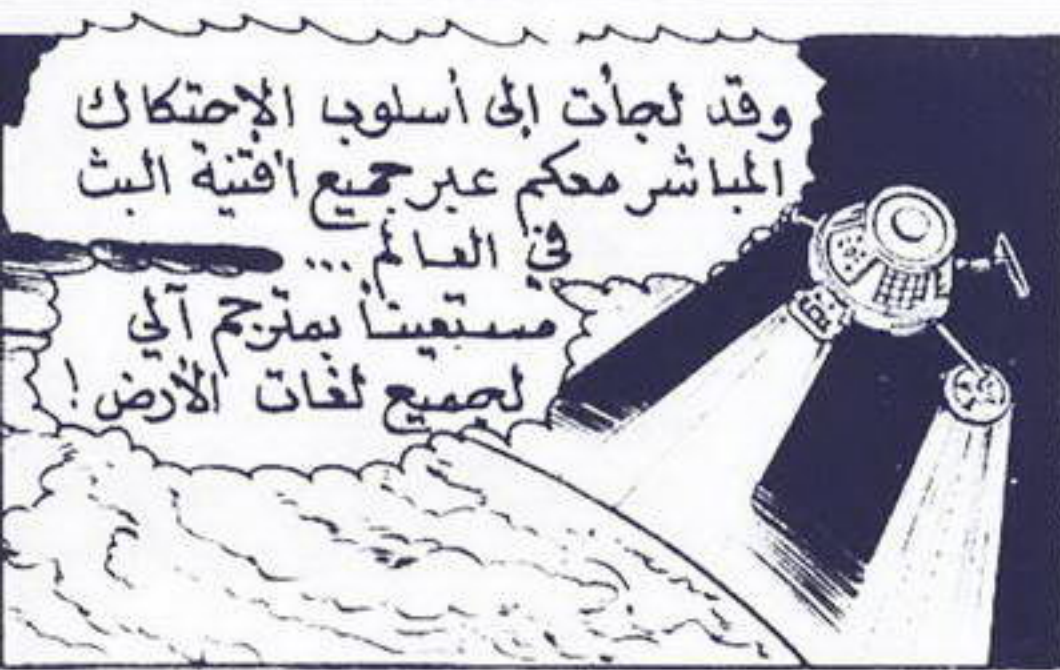 وقد لجأت إلى أسلوب الإحتكاك
المباشر معكم عبر جميع اقنية البث
في العالم ...
مستعيناً بمترجم آلي
لجميع لغات الأرض !